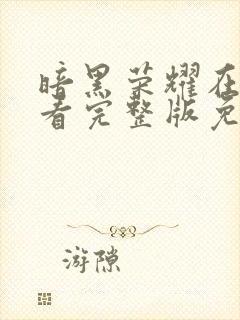 暗黑荣耀在
看完整版免
游隙